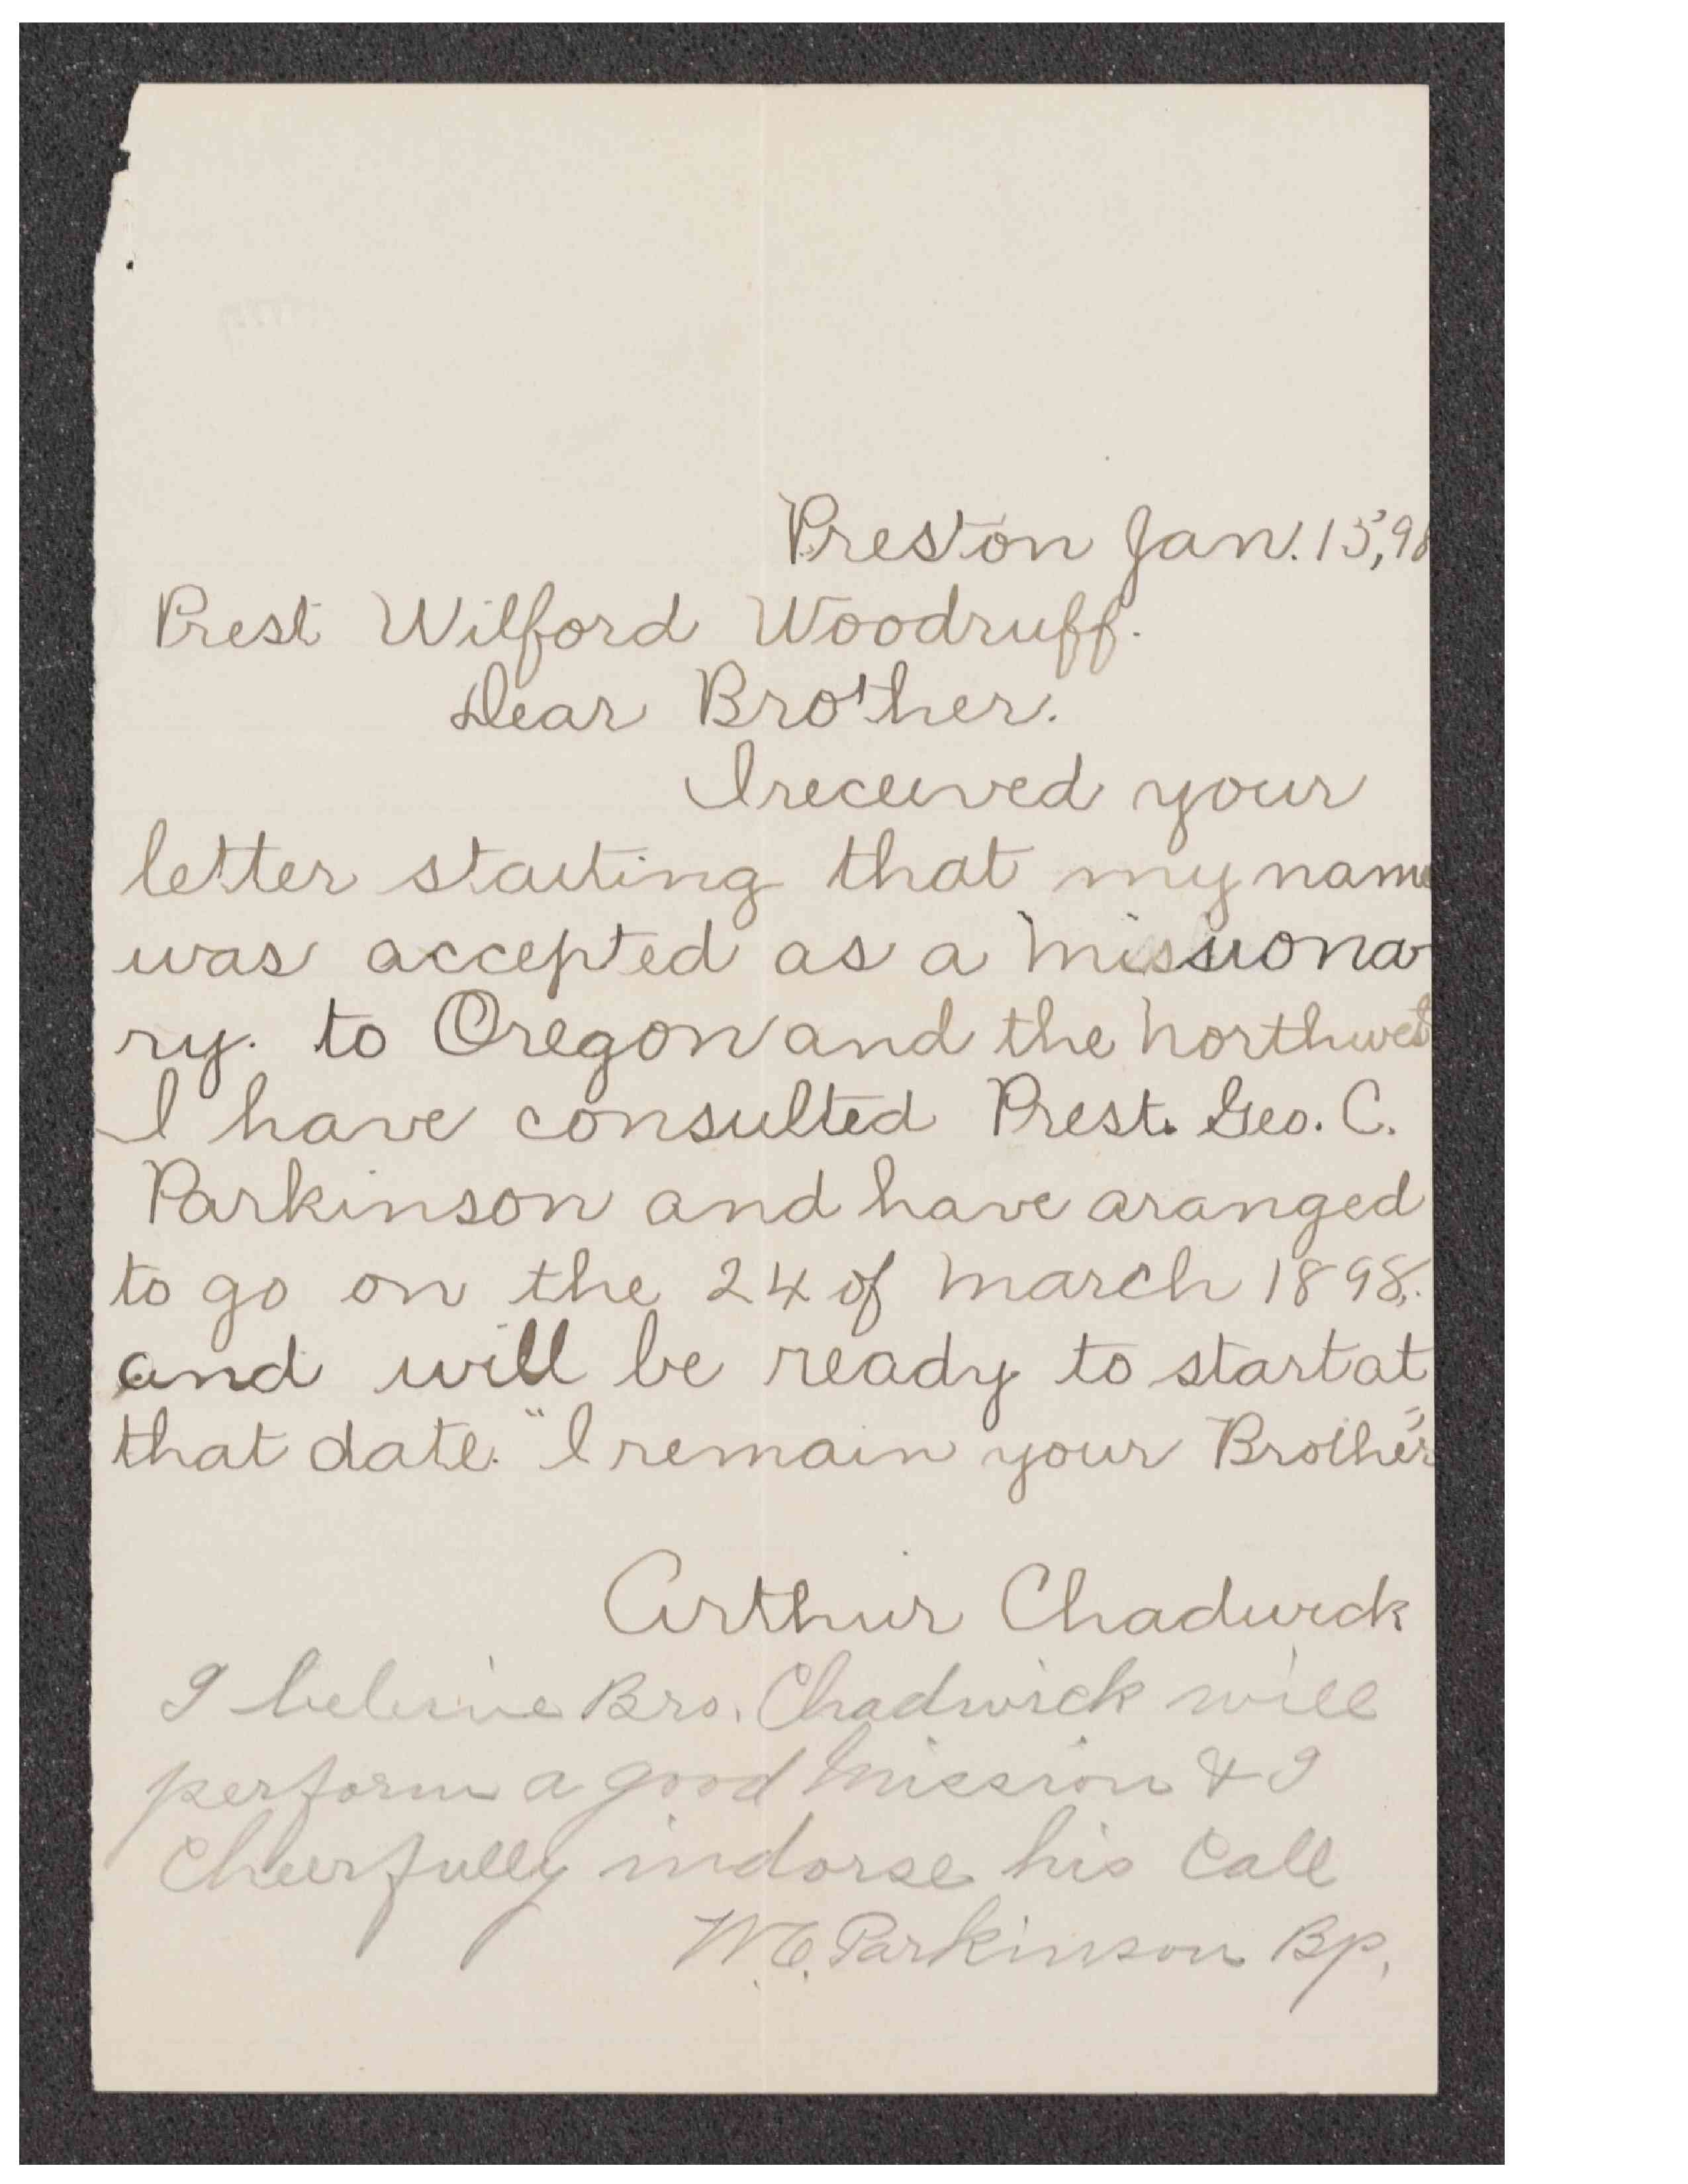 Preston Jan. 15, 98
Prest Wilford Woodruff.
Dear Brother.
I received your
letter stateing that my name
was accepted as a missiona
ry. to Oregon and the northwest
I have consulted Prest. Geo. C.
Parkinson and have aranged
to go on the 24 of march 1898,.
and will be ready to start at
that date. " I remain your Brother
Arthur Chadwick
I beleive Bro. Chadwick will
perform a good mission & I
Cheerfully indorse his Call
W.C. Parkinson Bp.